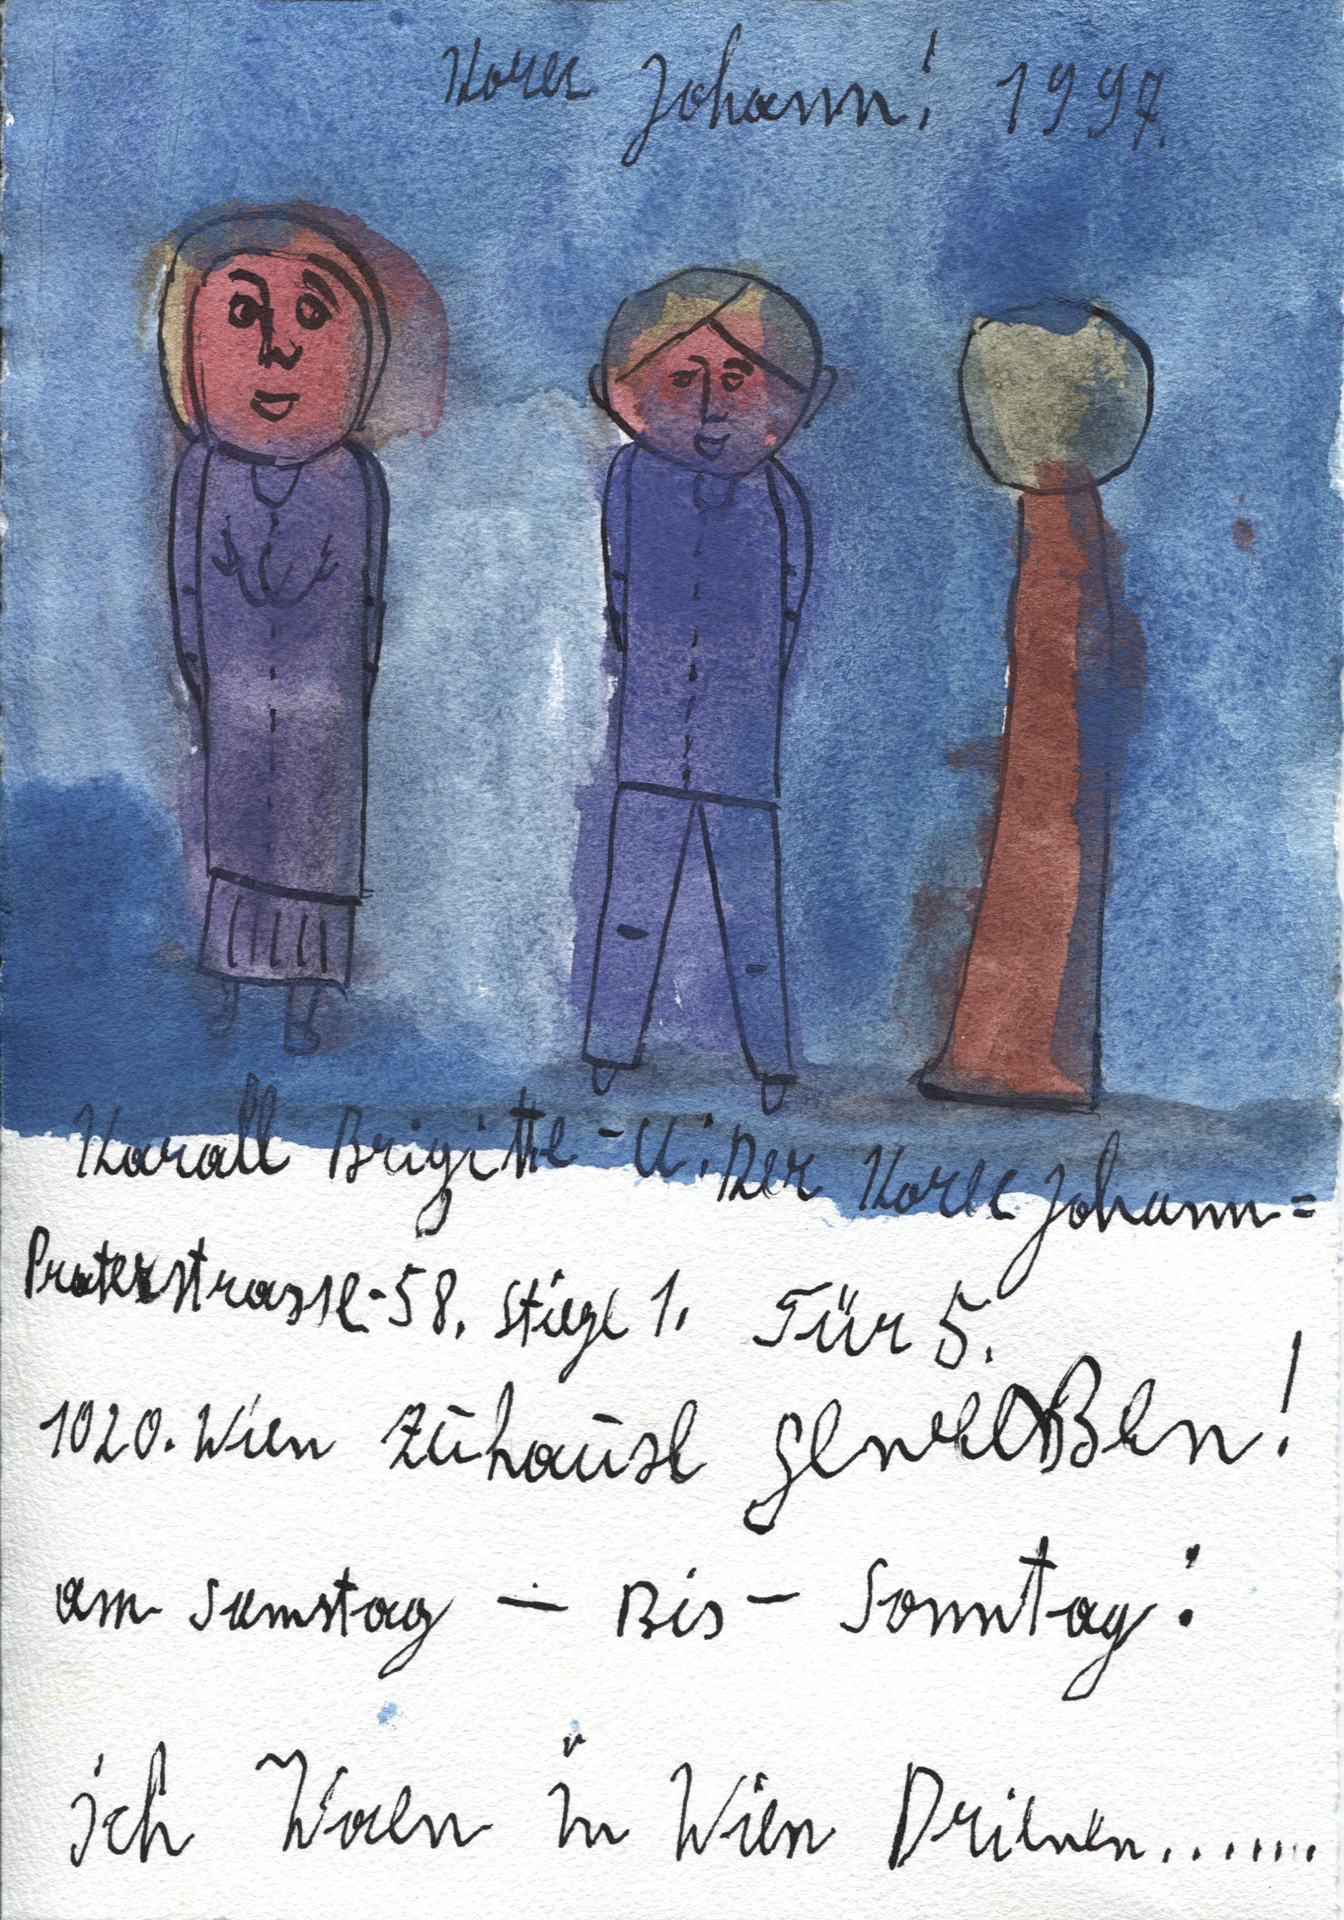 Korec Johann! 1997.
Karall Brigitte - U: Der Korec Johann =
Praterstrasse - 58. Stiege 1. Tür 5.
1020. Wien Zuhause
am Samstag - Bis - Sonntag:
ich Waen in Wien Drienen.......